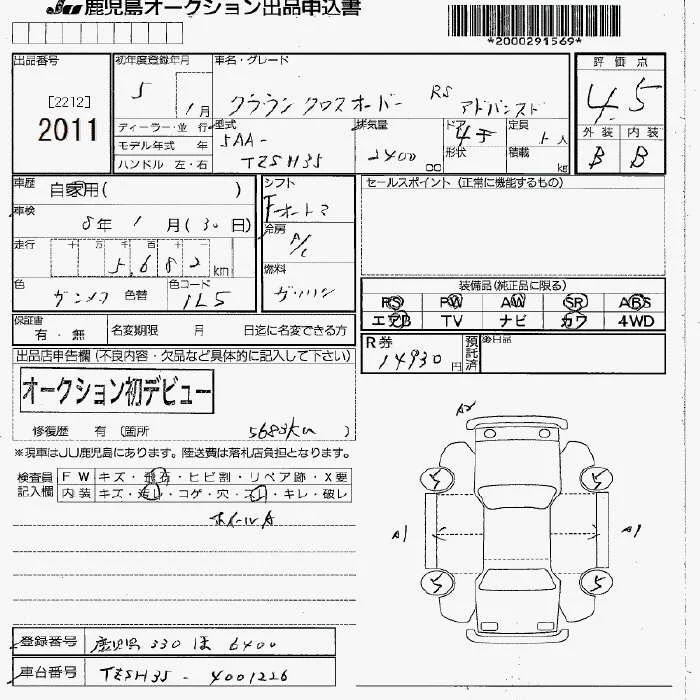 JU 鹿児島オークション出品申込書
*2000291569*
出品番号
[2212]
2011
初年度登録年月
5 1月
ディーラー・並 行
モデル年式 年
ハンドル 左・右
車名・グレード
クラウン クロスオーバー RS アドバンスド
型式
5AA-
TZSH35
排気量
2400 cc
ドア
4 形状
定員
5人
積載
kg
評 価 点
4.5
外 装 内 装
B B
車歴
自家用( )
車検
8年 1月(30日)
走行
十 万 千 百 十
5,682km
色
ガンメタ 色替
色コード
1L5
シフト
Fオートマ
冷房
A/C
燃料
ガソリン
セールスポイント (正常に機能するもの)
装備品(純正品に限る)
PS PW AW SR ABS
エアB TV ナビ カワ 4WD
保証書
有・無
名変期限 月 日迄に名変できる方
R券
14930円
預託済
後日品
出品店申告欄(不良内容・欠品など具体的に記入して下さい)
オークション初デビュー
修復歴 有 (箇所 5682km )
※現車はJU鹿児島にあります。陸送費は落札店負担となります。
検査員記入欄
FW キズ・飛石・ヒビ割・リペア跡・X要
内装 キズ・汚レ・コゲ・穴・スレ・キレ・破レ
ホイールA
A2
5 5
A1 A1
5 5
登録番号 鹿児島 330 ほ 6400
車台番号 TZSH35 - 4001226